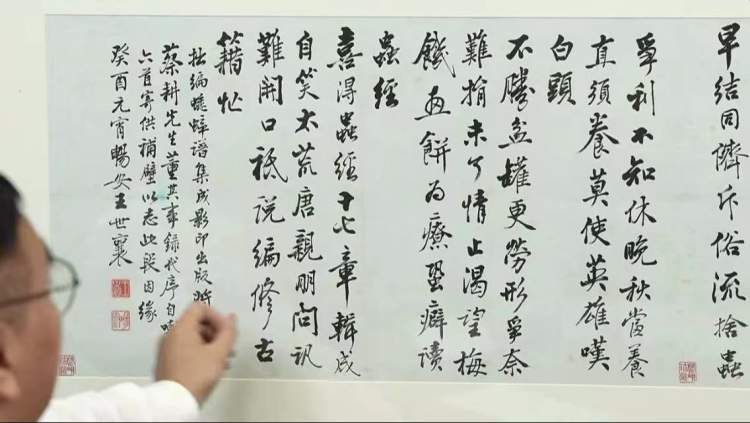 早結同儕斥俗流捨蟲
爭利不知休晚秋當養
直須養莫使英雄嘆
白頭
不勝盆罐更勞形爭奈
難捐未了情止渴望梅
饑畫餅為療蛩癖讀
蟲經
喜得蟲經十七章輯成
自笑太荒唐親朋問訊
難開口祗說編修古
籍忙
拙編蟋蟀譜集成影印出版
蔡耕先生董其事錄代序自
六首寄供補壁以志此段因緣
癸酉元宵暢安王世襄